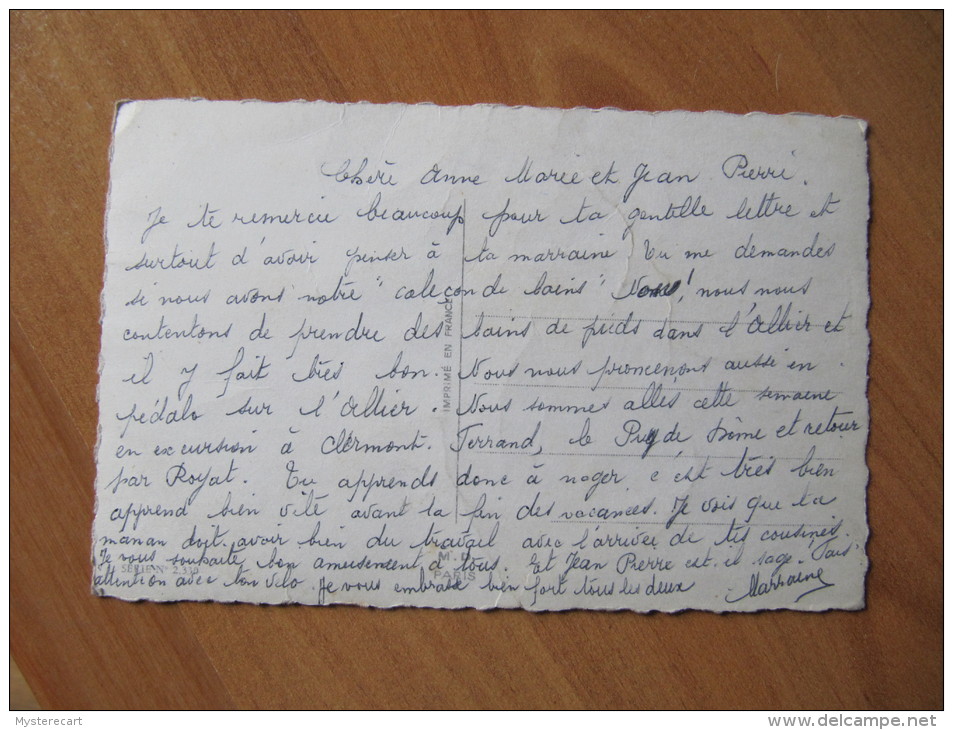 Chère Anne Marie et Jean Pierre.
Je te remercie beaucoup pour ta gentille lettre et
surtout d'avoir penser à ta marraine Tu me demandes
si nous avons notre "caleçon de bains" Nous! nous nous
contentons de prendre des bains de pieds dans l'Allier et
il y fait très bon. Nous nous promenons aussi en
pédalo sur l'Allier. Nous sommes allés cette semaine
en excursion à Clermont-Ferrand, le Puy de Dôme et retour
par Royat. Tu apprends donc à nager c'est très bien
apprend bien vite avant la fin des vacances. Je vois que ta
maman doit avoir bien du travail avec l'arrivée de tes cousines.
Je vous souhaite bien amusement à tous. Et Jean Pierre est-il sage. Fais
attention avec ton vélo. Je vous embrasse bien fort tous les deux Marraine
IMPRIMÉ EN FRANCE
SÉRIE N° 2.330
M. D.
PARIS
Mysterecart
www.delcampe.net